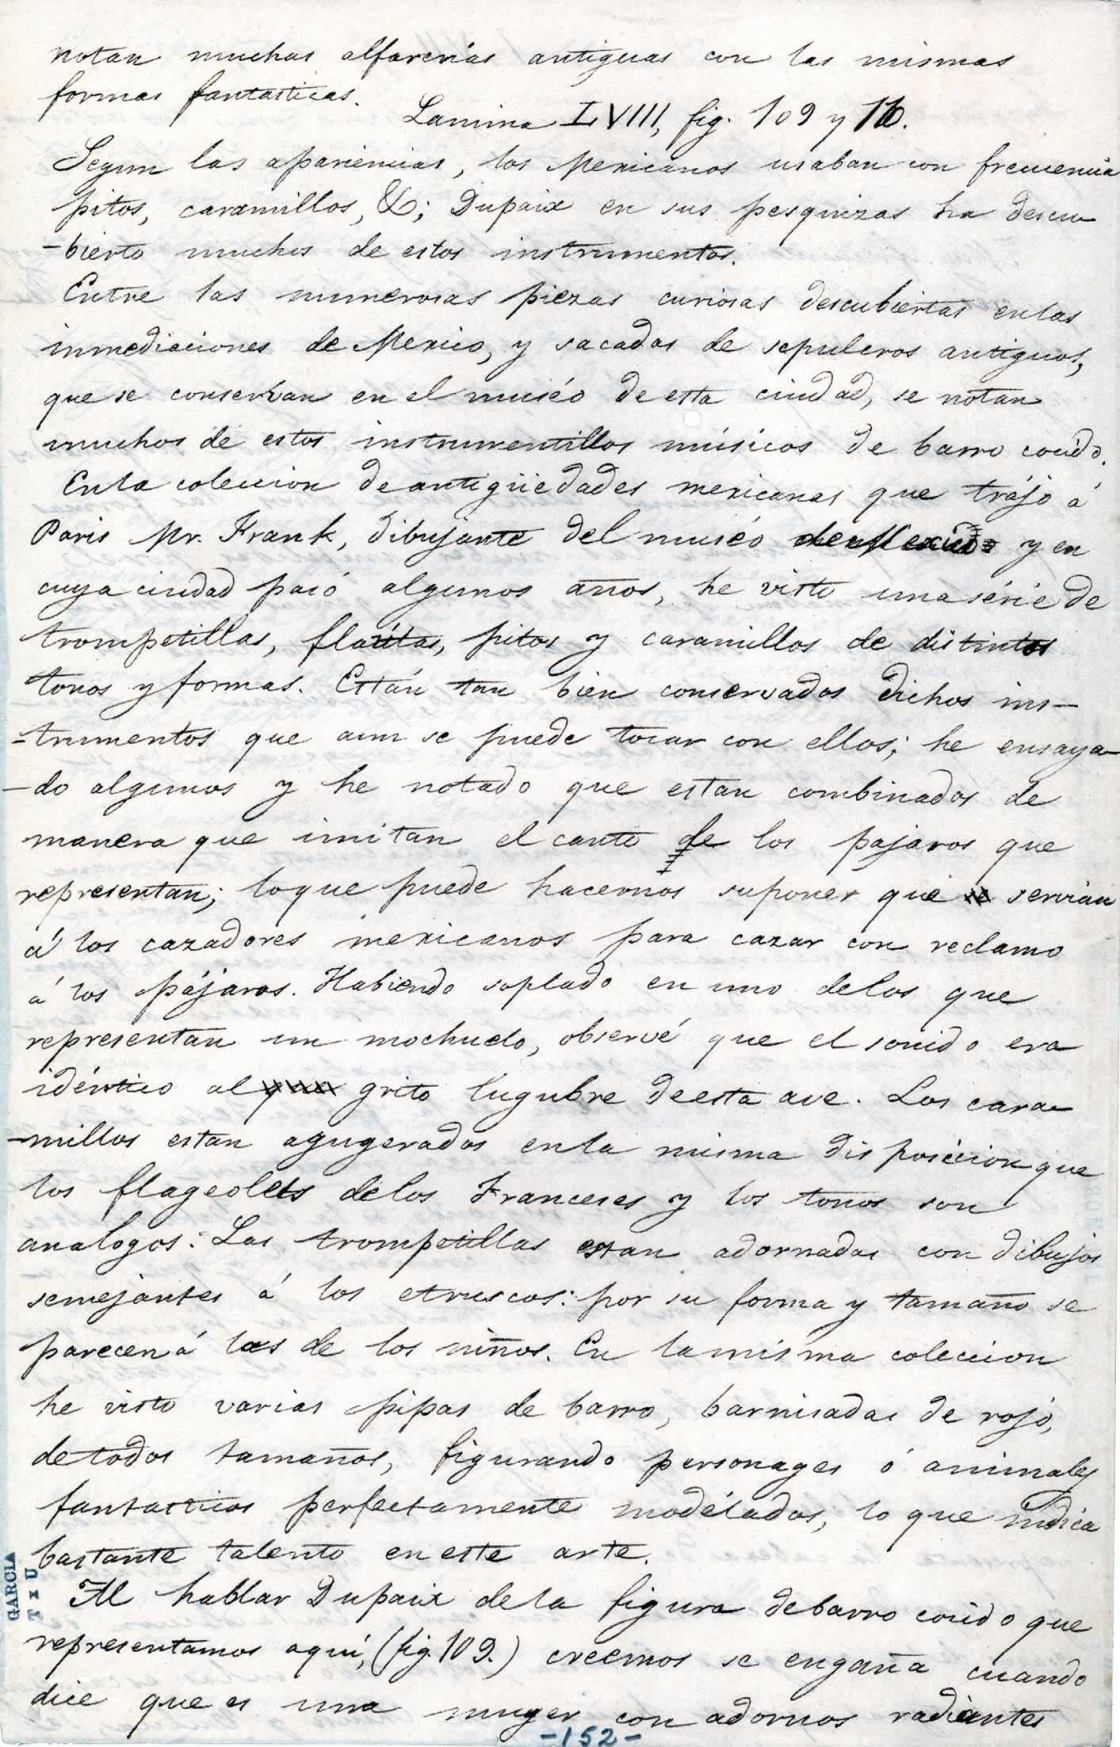 notan muchas alfarerias antiguas con las mismas
formas fantasticas.
Lamina LVIII, fig. 109 y 110.
Segun las apariencias, los Mexicanos usaban con frecuencia
pitos, caramillos, &; Dupaix en sus pesquizas ha descu
-bierto muchos de estos instrumentos.
Entre las numerosas piezas curiosas descubiertas en las
inmediaciones de Mexico, y sacadas de sepulcros antiguos,
que se conservan en el muséo de esta ciudad, se notan
muchos de estos instrumentillos músicos de barro cocido.
En la coleccion de antigüedades mexicanas que trájo á
Paris Mr. Frank, dibujante del muséo de Mexico y en
cuya ciudad pasó algunos años, he visto una série de
trompetillas, flaútas, pitos y caramillos de distintos
tonos y formas. Están tan bien conservados dichos ins-
-trumentos que aun se puede tocar con ellos; he ensaya
-do algunos y he notado que estan combinados de
manera que imitan el canto de los pájaros que
representan; lo que puede hacernos suponer que servian
á los cazadores mexicanos para cazar con reclamo
á los pájaros. Habiendo soplado en uno de los que
representan un mochuelo, observé que el sonido era
idéntico al grito lugubre de esta ave. Los cara
-millos estan agugerados en la misma disposicion que
los flageolets de los Franceses y los tonos son
analogos: Las trompetillas estan adornadas con dibujos
semejantes á los etruscos: por su forma y tamaño se
parecen á las de los niños. En la misma coleccion
he visto varias pipas de barro, barnisadas de rojo,
de todos tamaños, figurando personages ó animales
fantasticos perfectamente modélados, lo que indica
bastante talento en este arte.
Al hablar Dupaix de la figura de barro cocido que
representamos aquí, (fig. 109.) creemos se engaña cuando
dice que es una muger con adornos radiantes
-152-
GARCIA